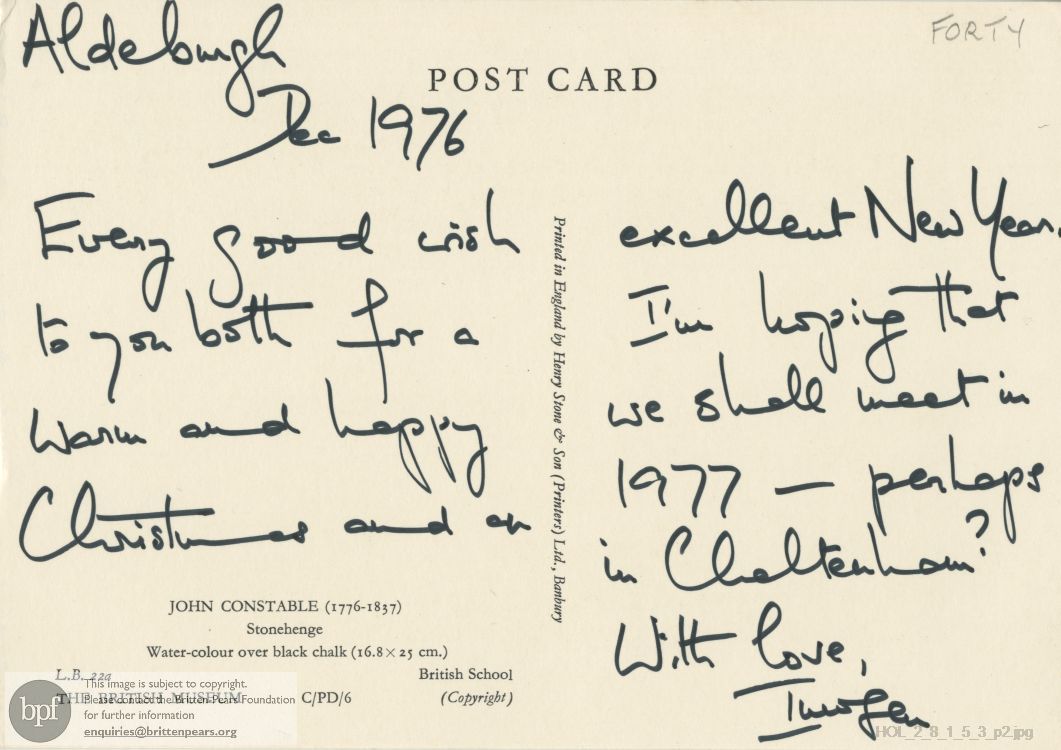 FORTY
POST CARD
Aldeburgh
Dec 1976
Every good wish
to you both for a
warm and happy
Christmas and an
excellent New Year.
I'm hoping that
we shall meet in
1977 — perhaps
in Cheltenham?
With love,
Imogen
Printed in England by Henry Stone & Son (Printers) Ltd., Banbury
JOHN CONSTABLE (1776-1837)
Stonehenge
Water-colour over black chalk (16.8 × 25 cm.)
L.B. 22a British School
THE BRITISH MUSEUM C/PD/6 (Copyright)
bpf
This image is subject to copyright.
Please contact the Britten-Pears Foundation
for further information
enquiries@brittenpears.org
HOL_2_8_1_5_3_p2.jpg